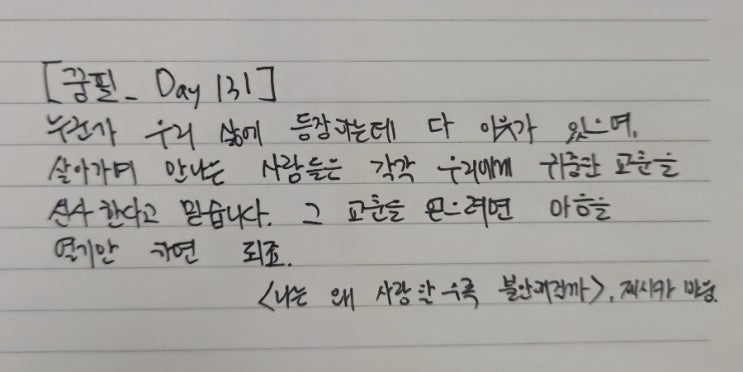 [꿈필_ Day 131]
누군가 우리 삶에 등장하는데 다 이유가 있으며,
살아가며 만나는 사람들은 각각 우리에게 귀중한 교훈을
선사한다고 믿습니다. 그 교훈을 얻으려면 마음을
열기만 하면 되죠.
<나는 왜 사랑할수록 불안해질까>, 제시카 바움